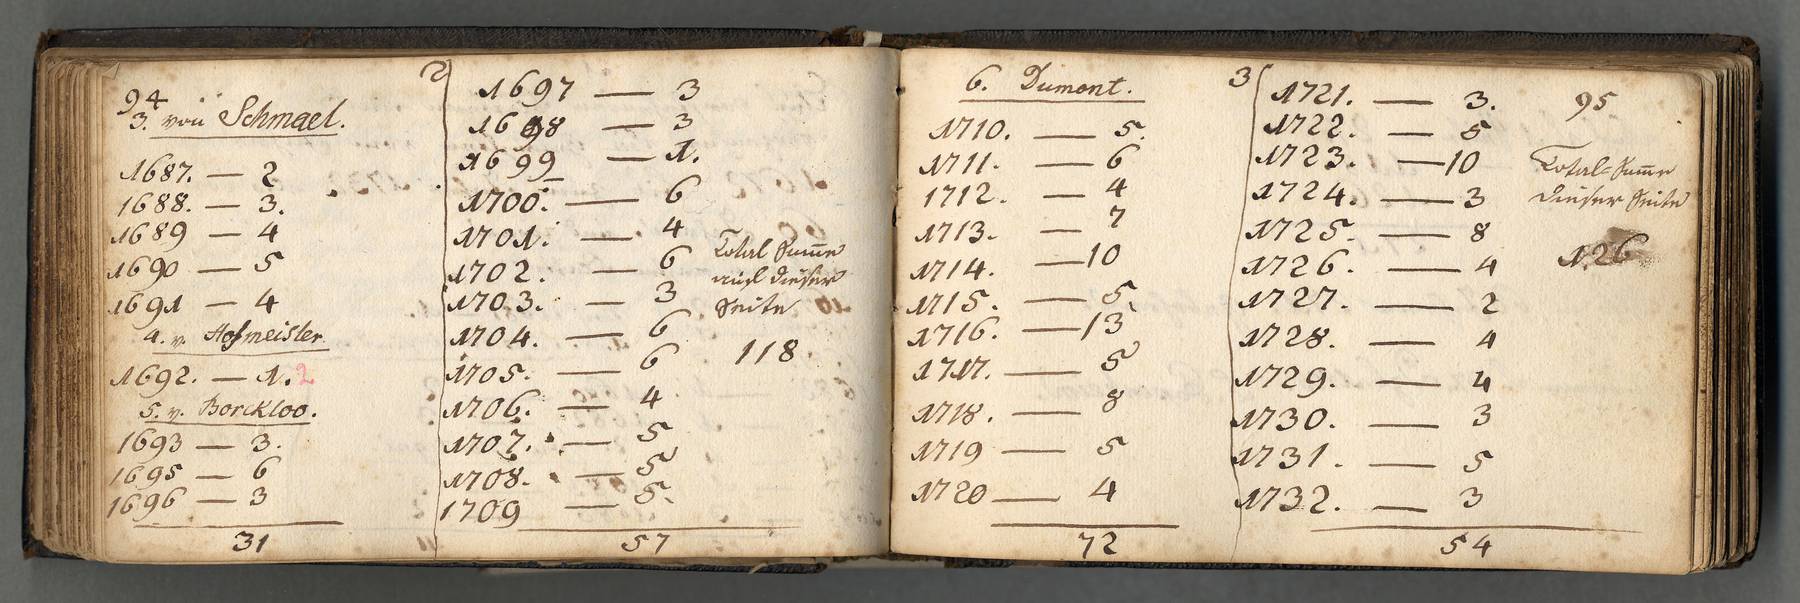 94
3. von Schmael.
1687. — 2
1688. — 3.
1689 — 4
1690 — 5
1691 — 4
4. v. Hofmeister
1692. — 1. 2
5. v. Borckloo.
1693 — 3.
1695 — 6
1696 — 3
31
2
1697 — 3
1698 — 3
1699 — 1.
1700. — 6
1701. — 4
1702. — 6
1703. — 3
1704. — 6
1705. — 6
1706. — 4
1707. — 5
1708. — 5
1709 — 5.
57
Total Sum̅e
auf dieser
Seite
118
6. Dumont.
1710. — 5.
1711. — 6
1712. — 4
1713. — 7
1714. — 10
1715. — 5.
1716. — 13
1717. — 5
1718. — 8
1719 — 5
1720 — 4
72
3
1721. — 3.
1722. — 5
1723. — 10
1724. — 3
1725. — 8
1726. — 4
1727. — 2
1728. — 4
1729. — 4
1730. — 3
1731. — 5
1732. — 3
54
95
Total-Sum̅e
dieser Seite
126